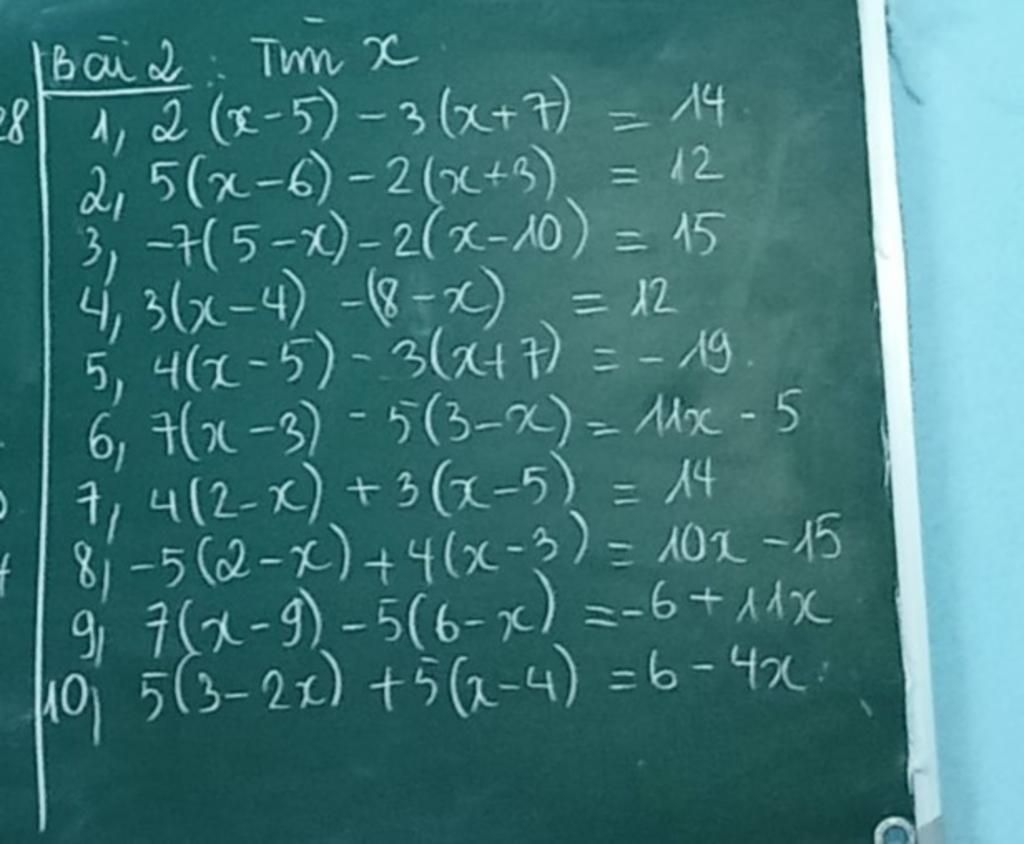 Bài 2 : Tìm x
28
1, 2 (x-5) - 3(x+7) = 14
2, 5(x-6) - 2(x+3) = 12
3, -7(5-x) - 2(x-10) = 15
4, 3(x-4) -(8-x) = 12
5, 4(x-5) - 3(x+7) = - 19.
6, 7(x-3) - 5(3-x) = 11x - 5
7, 4(2-x) + 3(x-5) = 14
8, -5(2-x) + 4(x-3) = 10x - 15
9, 7(x-9) - 5(6-x) = -6 + 11x
10, 5(3-2x) + 5(x-4) = 6 - 4x.